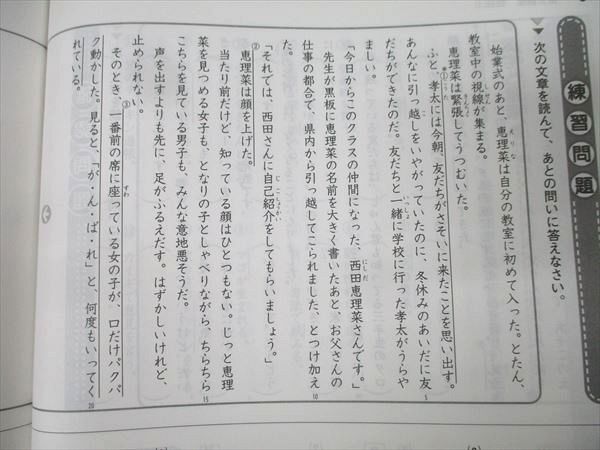 練習問題
▼次の文章を読んで、あとの問いに答えなさい。
始業式のあと、恵理菜は自分の教室に初めて入った。とたん、
教室中の視線が集まる。
恵理菜は緊張してうつむいた。
ふと、孝太には今朝、友だちがさそいに来たことを思い出す。
あんなに引っ越しをいやがっていたのに、冬休みのあいだに友
だちができたのだ。友だちと一緒に学校に行った孝太がうらや
ましい。
「今日からこのクラスの仲間になった、西田恵理菜さんです。」
先生が黒板に恵理菜の名前を大きく書いたあと、お父さんの
仕事の都合で、県内から引っ越してこられました、とつけ加え
た。
「それでは、西田さんに自己紹介をしてもらいましょう。」
②恵理菜は顔を上げた。
当たり前だけど、知っている顔はひとつもない。じっと恵理
菜を見つめる女子も、となりの子としゃべりながら、ちらちら
こちらを見ている男子も、みんな意地悪そうだ。
声を出すよりも先に、足がふるえだす。はずかしいけれど、
止められない。
そのとき、③一番前の席に座っている女の子が、口だけパクパ
ク動かした。見ると、「が・ん・ば・れ」と、何度もいってく
れている。
5
10
15
20